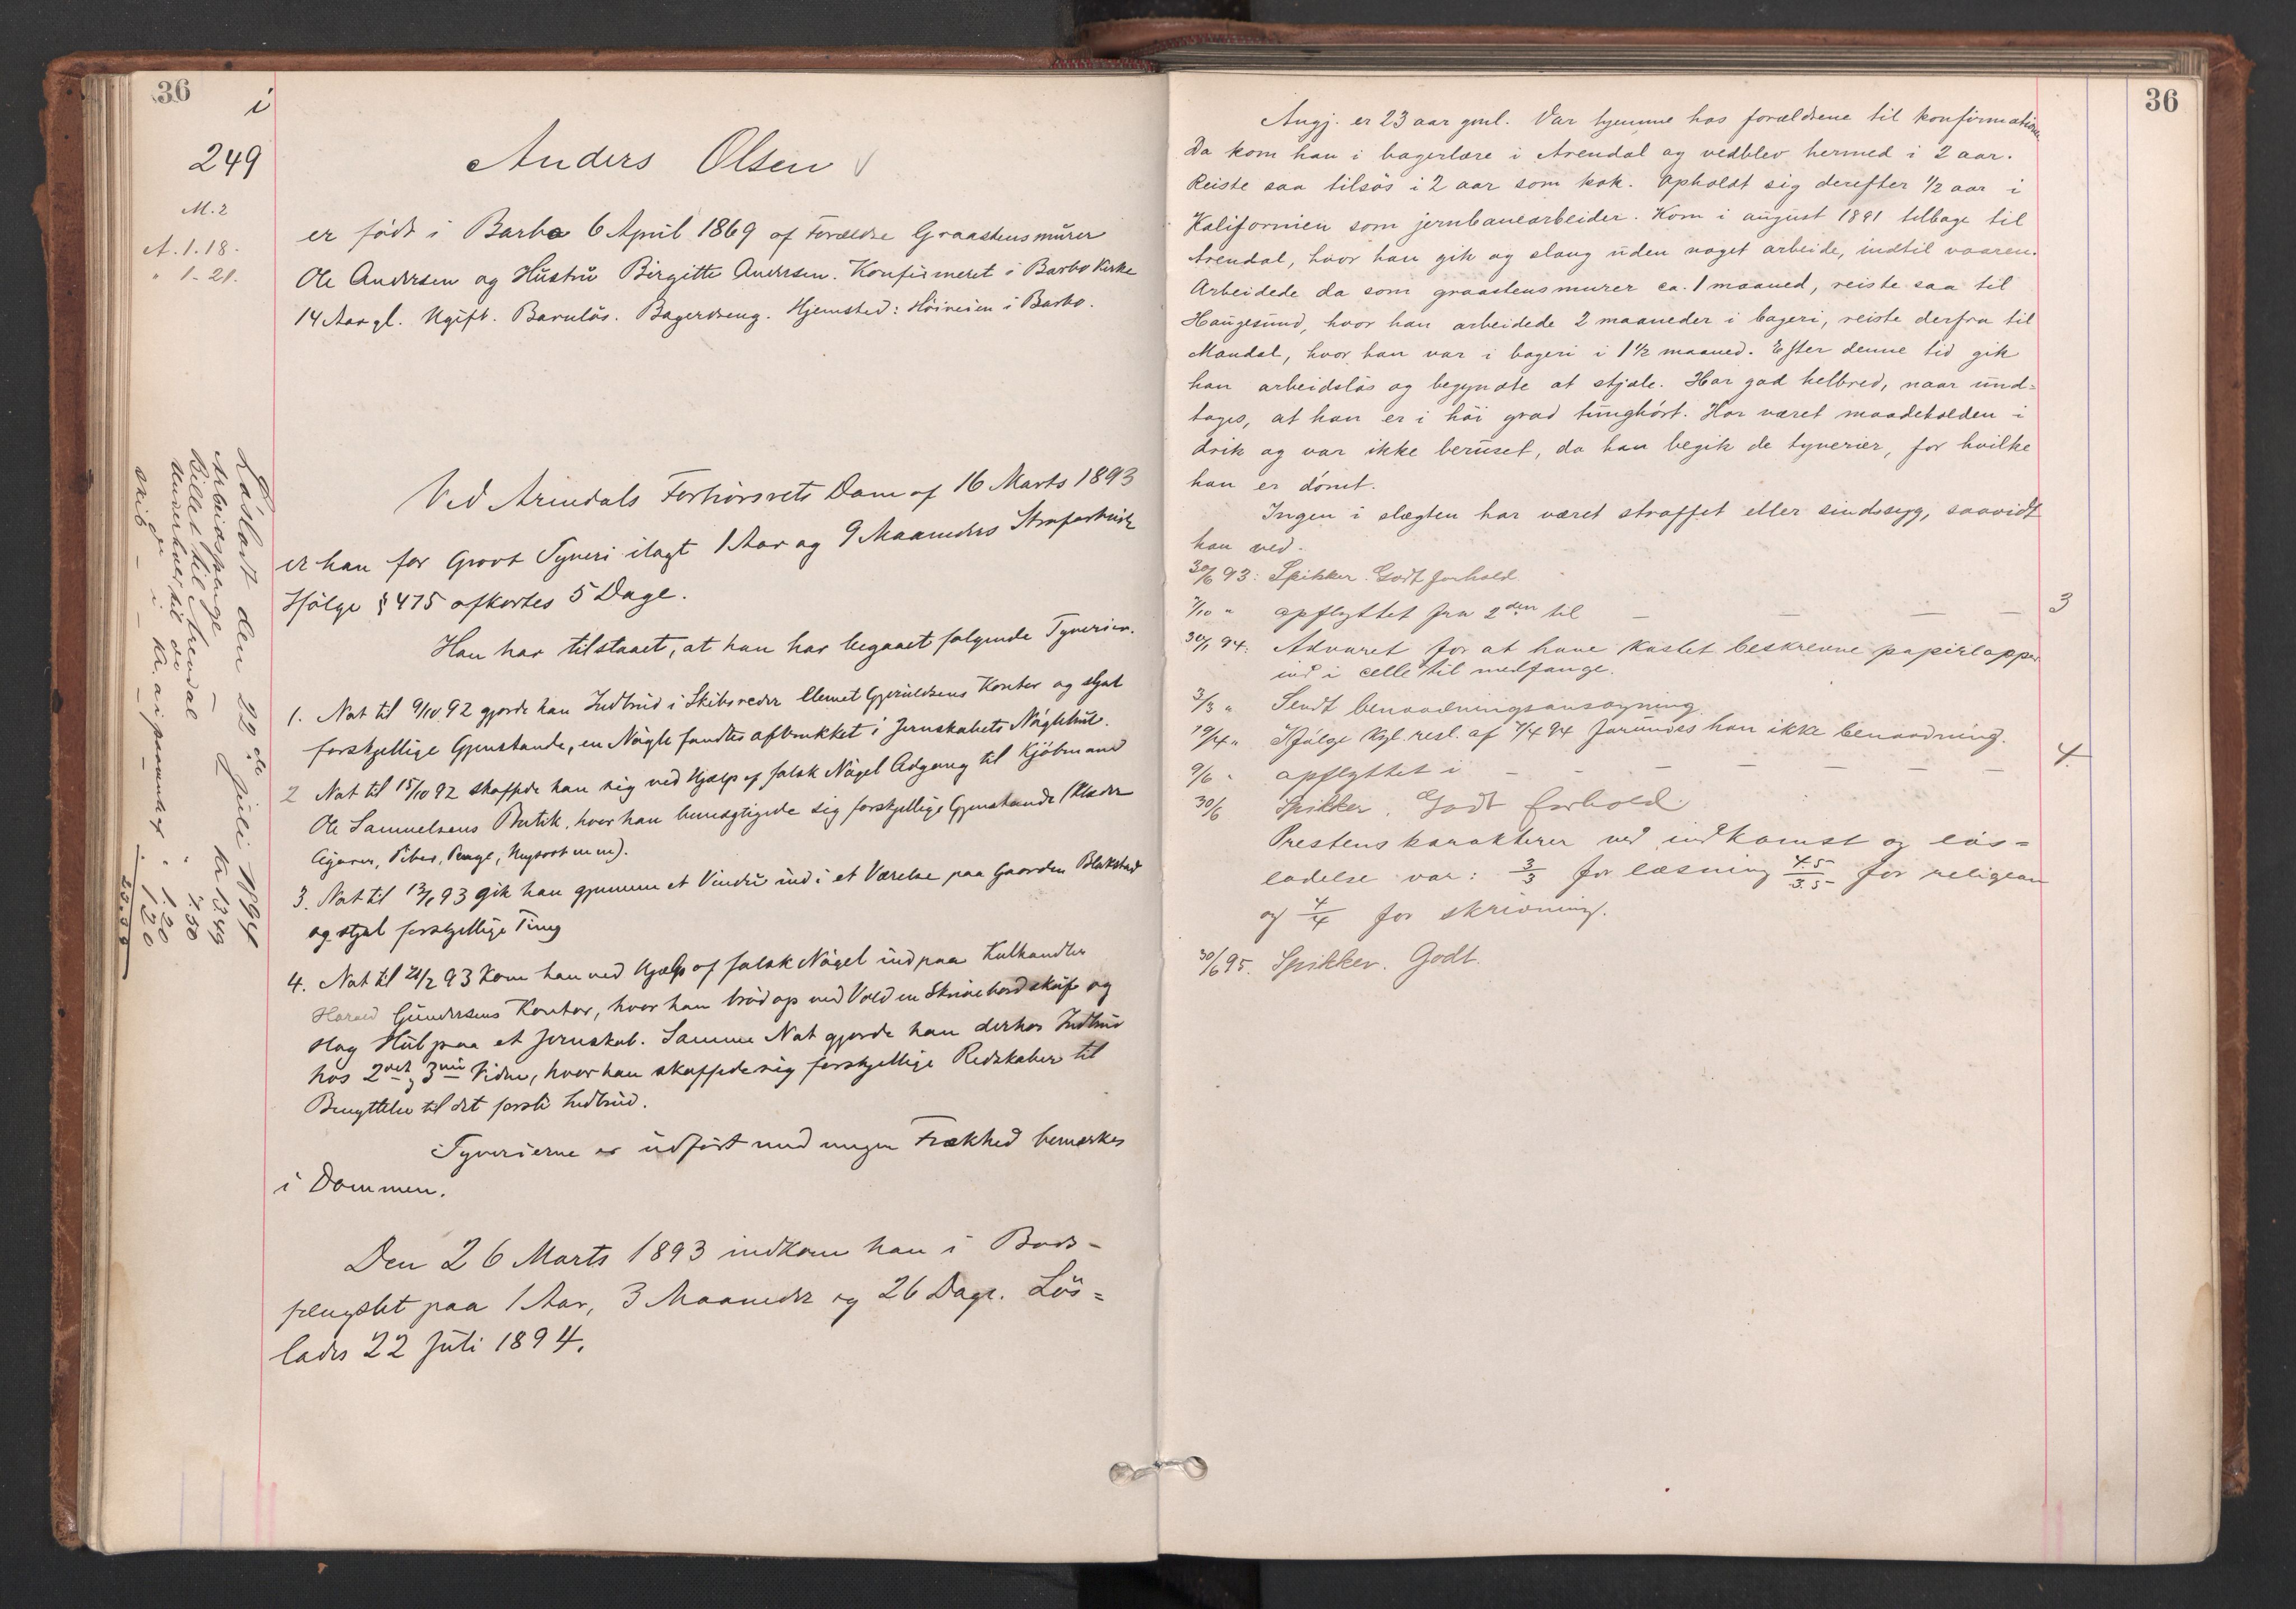 36
i
249
M. 2
A. 1. 18.
" 1 - 21.
Anders Olsen
er født i Barbo 6 April 1869 af Forældre Graastensmurer
Ole Andersen og Hustru Birgitte Andersen. Konfirmeret i Barbo Kirke
14 Aar gl. Ugift. Barnløs. Bagerdreng. Hjemsted: Høiveien i Barbo.
Ved Arendals Forhørsrets Dom af 16 Marts 1893
er han for Grovt Tyveri ilagt 1 Aar og 9 Maaneders Strafarbeide
Ifølge § 475 afkortes 5 Dage.
Han har tilstaaet, at han har begaaet følgende Tyverier.
1. Nat til 9/10 92 gjorde han Indbrud i Skibsreder Clemet Gjeruldsens Kontor og stjal
forskjellige Gjenstande, en Nøgle fandtes afbrukket i Jernskabets Nøglehul.
2 Nat til 15/10 92 skaffede han sig ved Hjælp af falsk Nøgel Adgang til Kjøbmand
Ole Samuelsens Butik, hvor han bemægtigede sig forskjellige Gjenstande (Klæder
Cigarer, Piber, Penge, m m).
3. Nat til 13/1 93 gik han gjennem et Vindu ind i et Værelse paa Gaarden Blakstad
og stjal forskjellige Ting
4. Nat til 21/2 93 kom han ved Hjælp af falsk Nøgel ind paa Kulhandler
Harald Gundersens Kontor, hvor han brød op med Vold en Skrivebordskuffe og
slog Hul paa et Jernskab. Samme Nat gjorde han derhos Indbrud
hos 2det og 3die Vidne, hvor han skaffede sig forskjellige Redskaber til
Benyttelse til det første Indbrud.
Tyverierne er udført med megen Frækhed bemærkes
i Dommen.
Den 26 Marts 1893 indkom han i Bods-
fengslet paa 1 Aar, 3 Maaneder og 26 Dage. Løs=
lades 22 Juli 1894.
Løsladt den 22de Juli 1894
Arbeidspenge - Kr 13.49
Billet til Arendal " 7.50
Underhold til do " 1.20
skib - - - 1.20
36
Angj. er 23 aar gml. Var hjemme hos forældrene til konfirmationen
Da kom han i bagerlære i Arendal og vedblev hermed i 2 aar.
Reiste saa tilsøs i 2 aar som kok. Opholdt sig derefter 1/2 aar i
Kalifornien som jernbanearbeider. Kom i august 1891 tilbage til
Arendal, hvor han gik og slang uden noget arbeide, indtil vaaren.
Arbeidede da som graastensmurer ca. 1 maaned, reiste saa til
Haugesund, hvor han arbeidede 2 maaneder i bageri, reiste derfra til
Mandal, hvor han var i bageri i 1 1/2 maaned. Efter denne tid gik
han arbeidsløs og begyndte at stjæle. Har god helbred, naar und=
tages, at han er i høi grad tunghørt. Har været maadeholden i
drik og var ikke beruset, da han begik de tyverier, for hvilke
han er dømt.
Ingen i slægten har været straffet eller sindssyg, saavidt
han ved.
30/6 93: Spikker. Godt forhold.
7/10 " opflyttet fra 2den til - - - - 3
30/1 94: Advaret for at have kastet beskrevne papirlapper
ind i celle til medfange.
3/3 " Sendt benaadningsansøgning.
19/4 " Ifølge Kgl. resl. af 7/4 94 forundes han ikke benaadning.
9/6 " opflyttet i - - - - - - 4.
30/6 Spikker. Godt forhold.
Prestens karakterer ved indkomst og løs=
ladelse var: 3/3 for læsning 4.5/3.5 for religion
og 4/4 for skrivning.
30/6 95. Spikker. Godt.